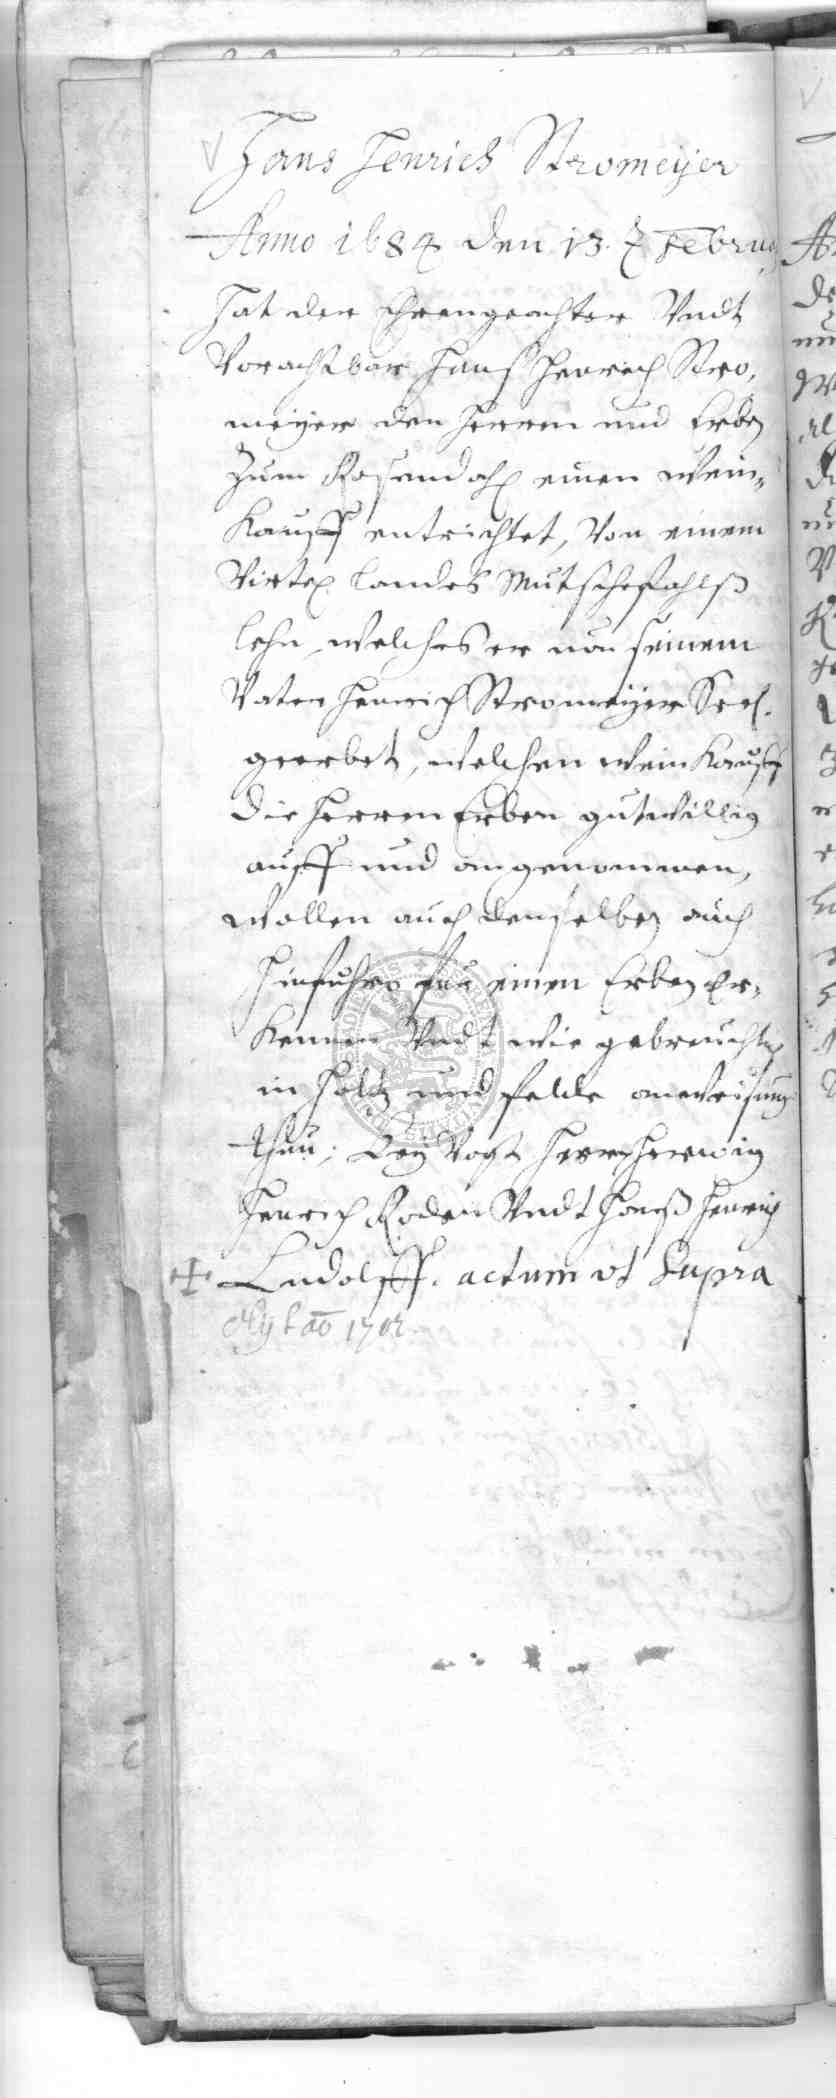 Hans Henrich Stromeÿer
Anno 1684 den 13. Februa
Hat der Ehrengeachter Undt
Vorachtbar Hanß Henrich Stro,
meÿer den Herren und Erben
Zum einen Wein,,
Kauff entrichtet, Von einem
Virtel Landes
lehn, welches er von seinem
Vater Henrich Stromeÿer Seel.
geerbet, welchen Wein Kauff
Die Herren Erben gutwillig
auff und angenommen,
Wollen auch denselben auch
Hinfuhro fur einen Erben Er,
Kennen Undt wie gebreuchlich
in Holtz und Felde anweisung
thun; Beÿ Vogt Herr Herwig
Henrich Roden Undt Hanß Henrich
Ludolff. actum ut Supra
ao 1702